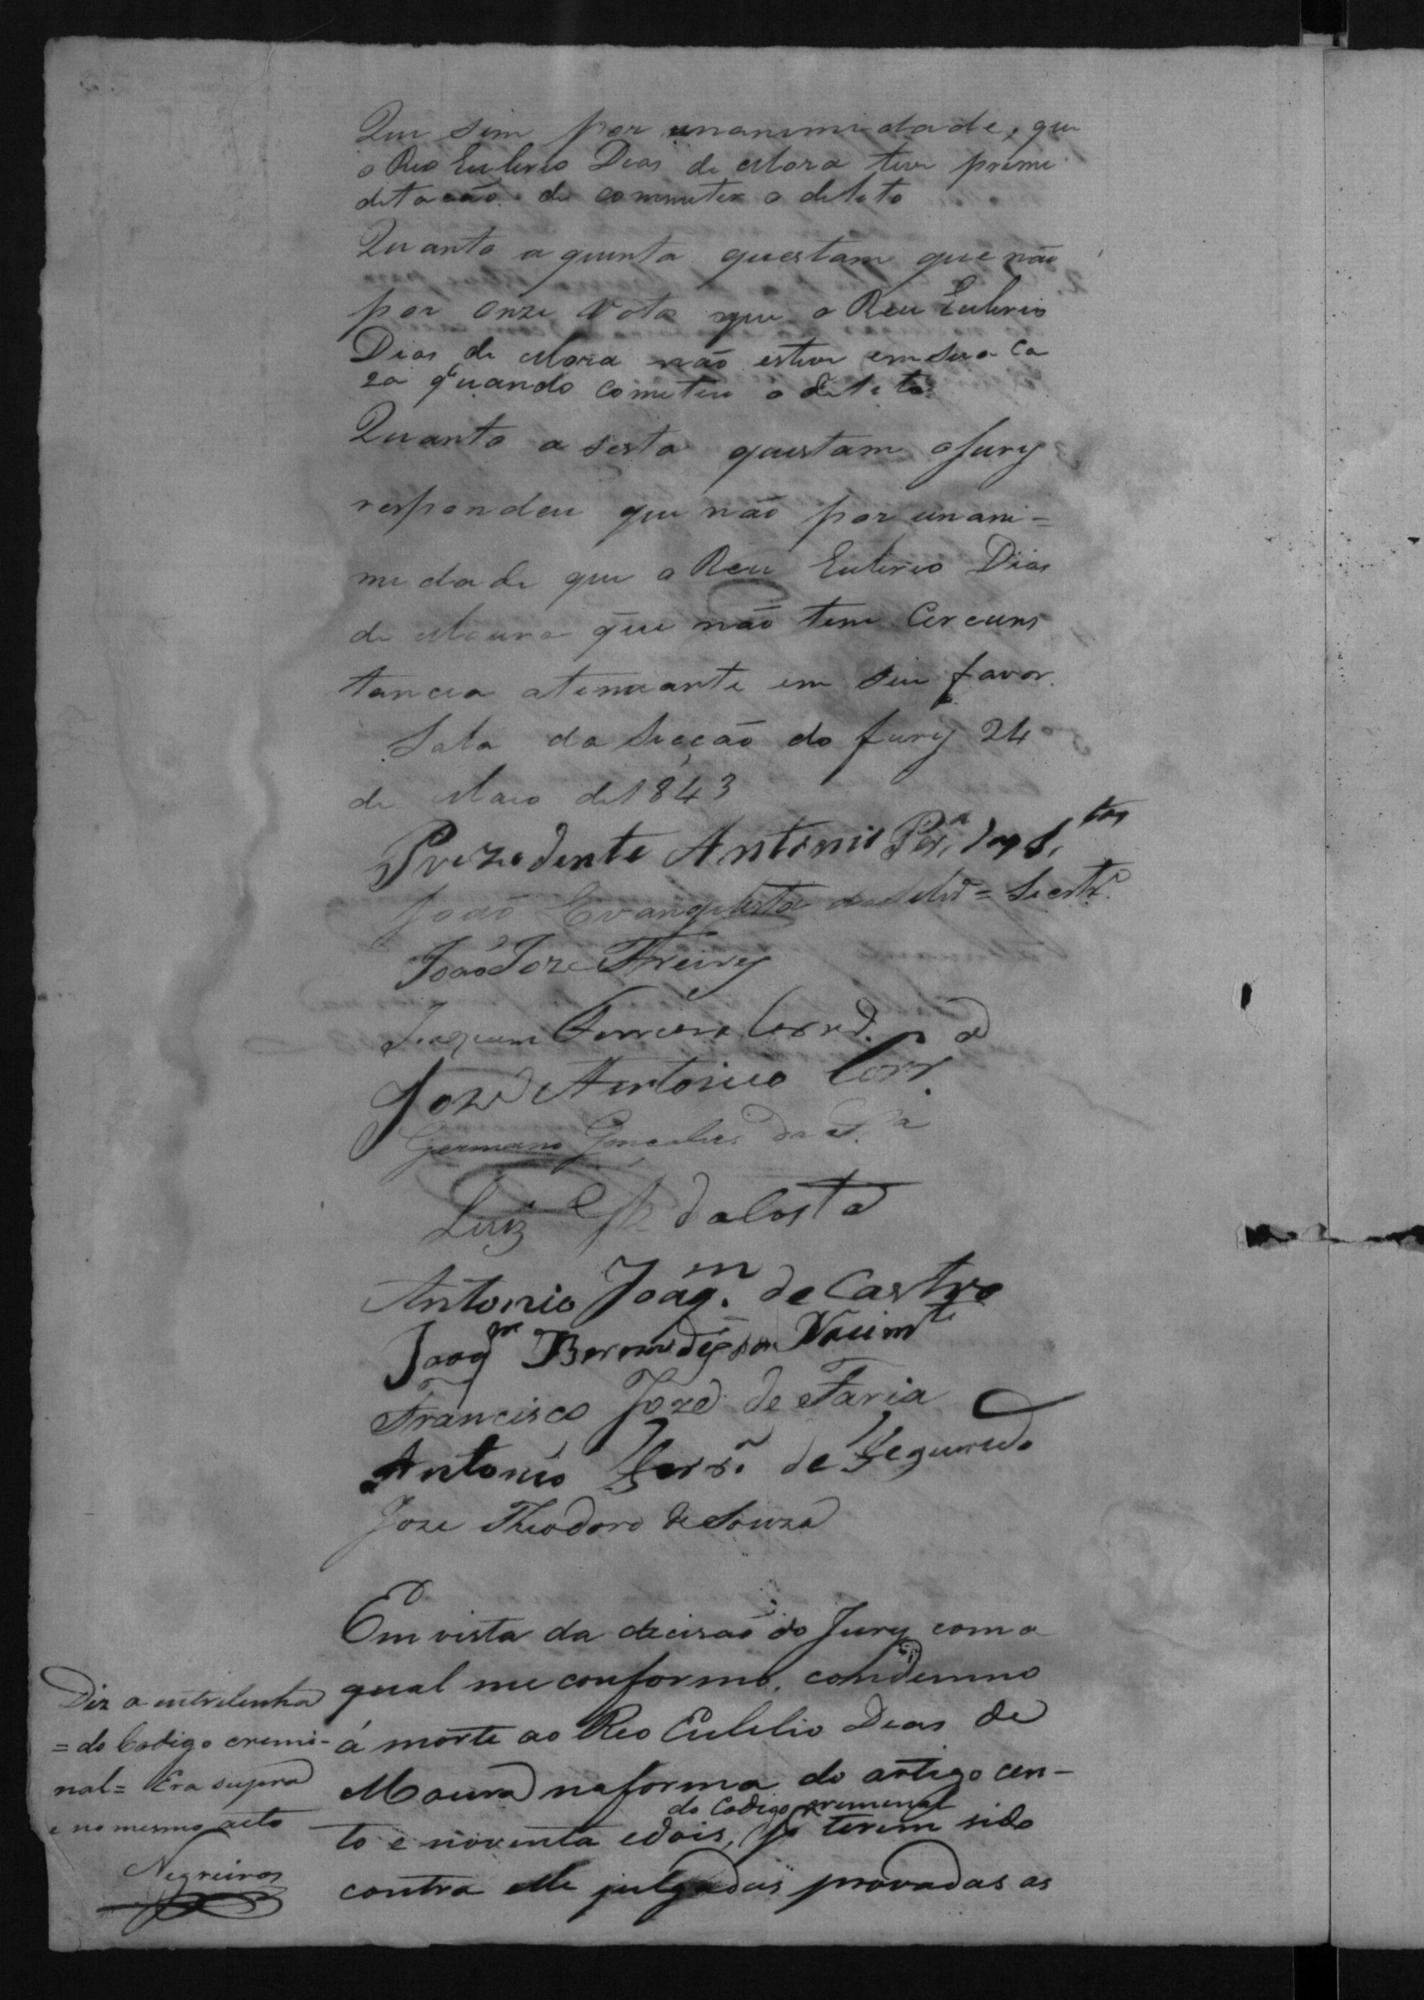 Que sim por unanimidade, que
o Reo Eulerio Dias de Mora teve preme
ditação de commeter o delito
Quanto a quinta questam que não
por onze Voto que o Reu Eulerio
Dias de Mora não esteve em sua ca
za quando cometeu o delito
Quanto a sesta questam o Jury
respondeu que não por unani=
midade que o Reu Eulerio Dias
de Moura que não tem Cercuns
tancia atenuante em seu favor.
Sala da Secção do Jury 24
de Maio de 1843
Prezedente Antonio Per.ª dos S.tos
João Evangelista da = Secret.º
João Joze Freire
Joaquim Ferreira
Joze Antonio Corr.ª
Germano Gonçalves da S.ª
Luiz da Costa
Antonio Joaq.m de Castro
Joaq.m Bernardes do Nacim.to
Francisco Joze de Faria
Antonio Ferr.ª de Segurado
Joze Theodoro de Souza
Em vista da decisaõ do Jury com o
qual me conformo, condemno
á morte ao Reo Eulelio Deas de
Moura na forma do artigo cen-
do Codigo cremenal
to e noventa e dois, p.r terem sido
contra elle julgadas provadas as
Diz a entrelinha
= do Codigo cremi-
nal= Era supra
e no mesmo acto
Negreiros